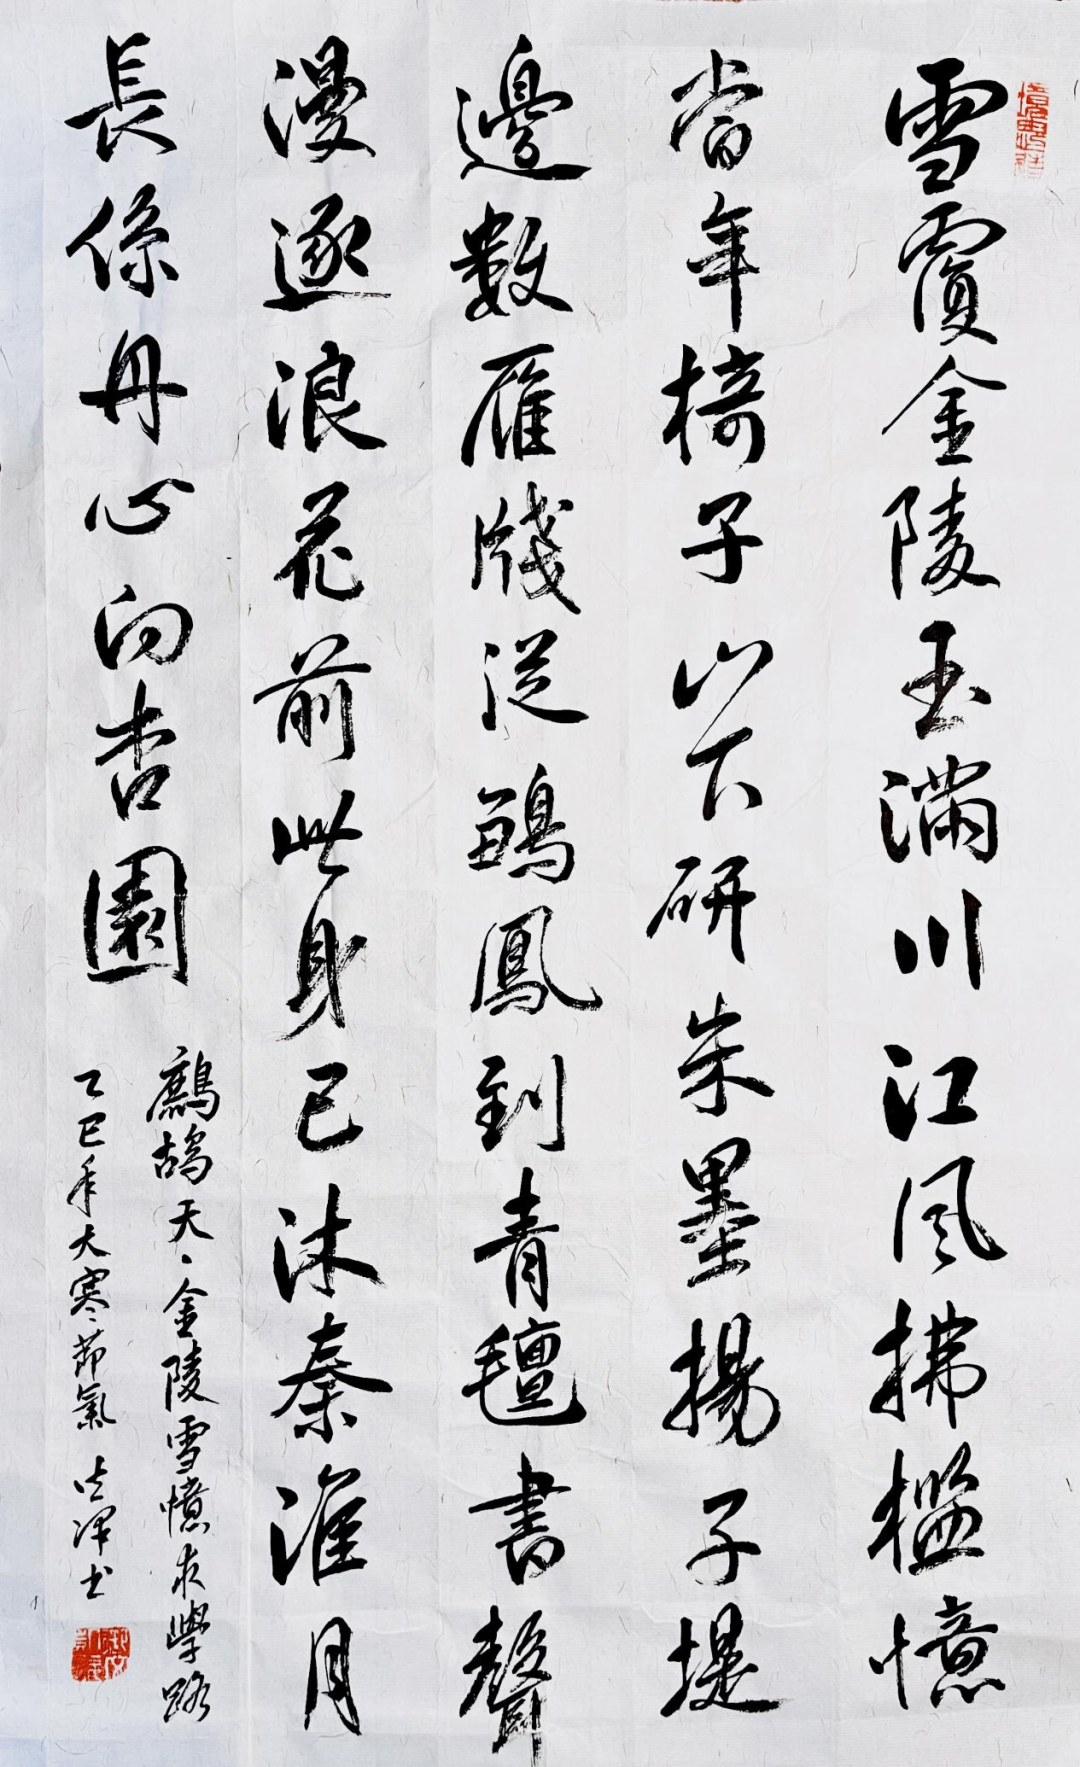 雪覆金陵玉滿川江風拂檻憶
當年椅子山下研朱墨揚子堤
邊數雁牋從鷁鳳到青氈書聲
漫逐浪花前此身已沐秦淮月
長係丹心向杏園
鷓鴣天、金陵雪憶求學路
乙巳年大寒節氣